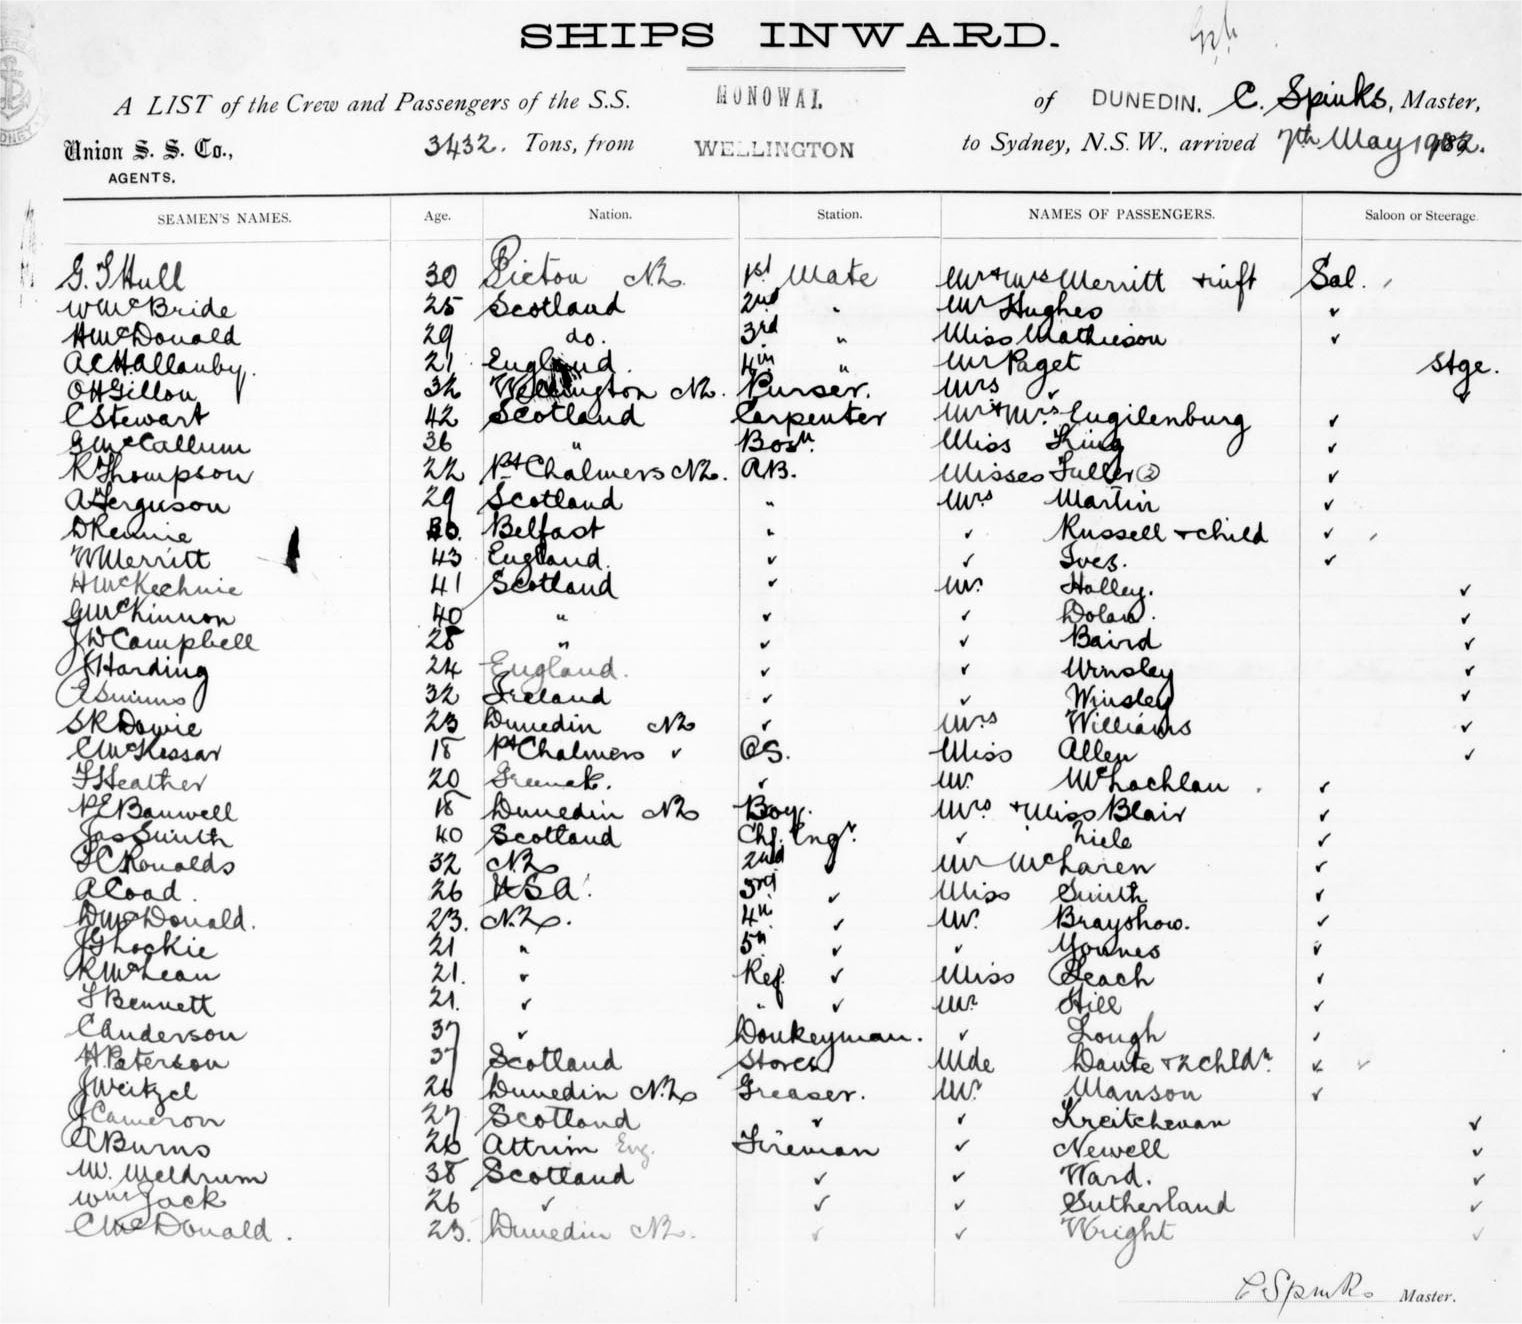 SHIPS INWARD.
A LIST of the Crew and Passengers of the S.S. MONOWAI of DUNEDIN. C. Spinks, Master,
Union S. S. Co., 3432. Tons, from WELLINGTON to Sydney, N.S.W., arrived 7th May
AGENTS.
SEAMEN'S NAMES. Age. Nation. Station. NAMES OF PASSENGERS. Saloon or Steerage
G. T Hull 30 Picton NZ 1st Mate Mr & Mrs Merritt & inft Sal.
W McBride 25 Scotland 2nd " Mr Hughes ✓
H McDonald 29 do. 3rd " Miss Mathieson ✓
A C Hallanby. 21 England. 4th " Mr Paget Stge.
O H Gillon 32 Wellington NZ. Purser. Mrs ✓ ✓
C Stewart 42 Scotland Carpenter Mr & Mrs Eugilenburg ✓
G McCallum 36 " Bosn. Miss King ✓
R Thompson 22 Pt Chalmers NZ. A.B. Misses Fuller (2) ✓
A Ferguson 29 Scotland " Mrs Martin ✓
D Rennie Belfast " ✓ Russell & child ✓
W Merritt 43 England. ✓ ✓ Ives. ✓
H McKechnie 41 Scotland ✓ Mr. Holley. ✓
G McKinnon 40 " ✓ ✓ Dolan. ✓
J D Campbell 28 " ✓ ✓ Baird ✓
J Harding 24 England. ✓ ✓ Urnsley ✓
E Simms 32 Ireland ✓ ✓ Winsley ✓
S R Dowie 23 Dunedin NZ ✓ Mrs Williams ✓
C McKessar 18 Pt Chalmers ✓ OS. Miss Allen ✓
F Heather 20 ✓ Mr. McLachlan ✓
P E Banwell 18 Dunedin NZ Boy. Mrs & Miss Blair ✓
Jas Smith 40 Scotland Chf. Engr. ✓ ✓
F C Ronalds 32 NZ 2nd Mr McLaren ✓
A Coad. 26 USA. 3rd ✓ Miss Smith ✓
D McDonald. 23. N.Z. 4th ✓ Mr. Brayshow. ✓
J G Lockie 21 " 5th ✓ ✓ Younes ✓
R McLean 21. ✓ Ref. ✓ Miss Leach ✓
F Bennett 21. ✓ " ✓ Mr. Hill ✓
C Anderson 37 ✓ Donkeyman. ✓ Lough ✓
H Paterson 37 Scotland Stores Mde Dante & 2 chldn. ✓
J Weitzel 26 Dunedin N.Z Greaser. Mr. Manson ✓
J Cameron 27 Scotland ✓ ✓ Kreitchman ✓
A Burns 26 Attrim Eng. Fireman ✓ Newell ✓
W. Meldrum 38 Scotland ✓ ✓ Ward. ✓
Wm Jack 26 ✓ ✓ ✓ Sutherland ✓
C McDonald. 23. Dunedin NZ. ✓ ✓ Wright ✓
C Spinks Master.